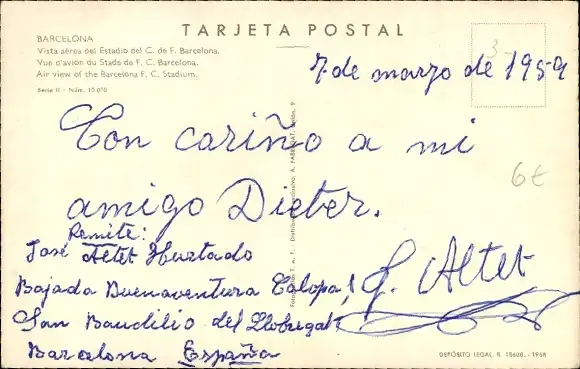 TARJETA POSTAL
BARCELONA
Vista aérea del Estadio del C. de F. Barcelona.
Vue d'avion du Stade de F. C. Barcelona.
Air view of the Barcelona F. C. Stadium.
Serie II - Núm. 10.010
3-
7 de marzo de 1959
Con cariño a mi
amigo Dieter.
6€
Remite:
José Altet Hurtado
Bajada Buenaventura
San Baudilio del Llobregat
Barcelona España
J. Altet
DEPÓSITO LEGAL. B. 18608. - 1958